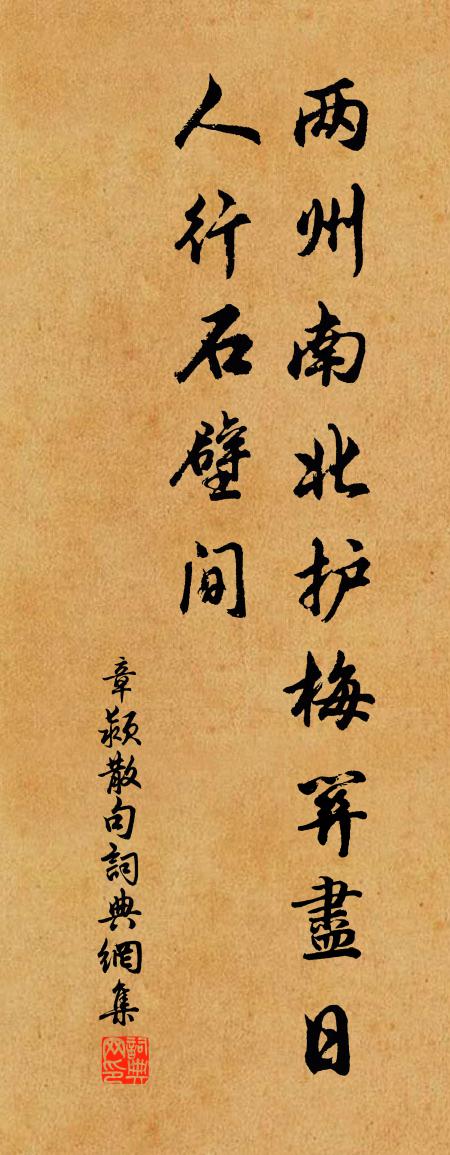 两州南北护梅关盡日
人行石壁间
章颖散句詞典網集
詞典网印